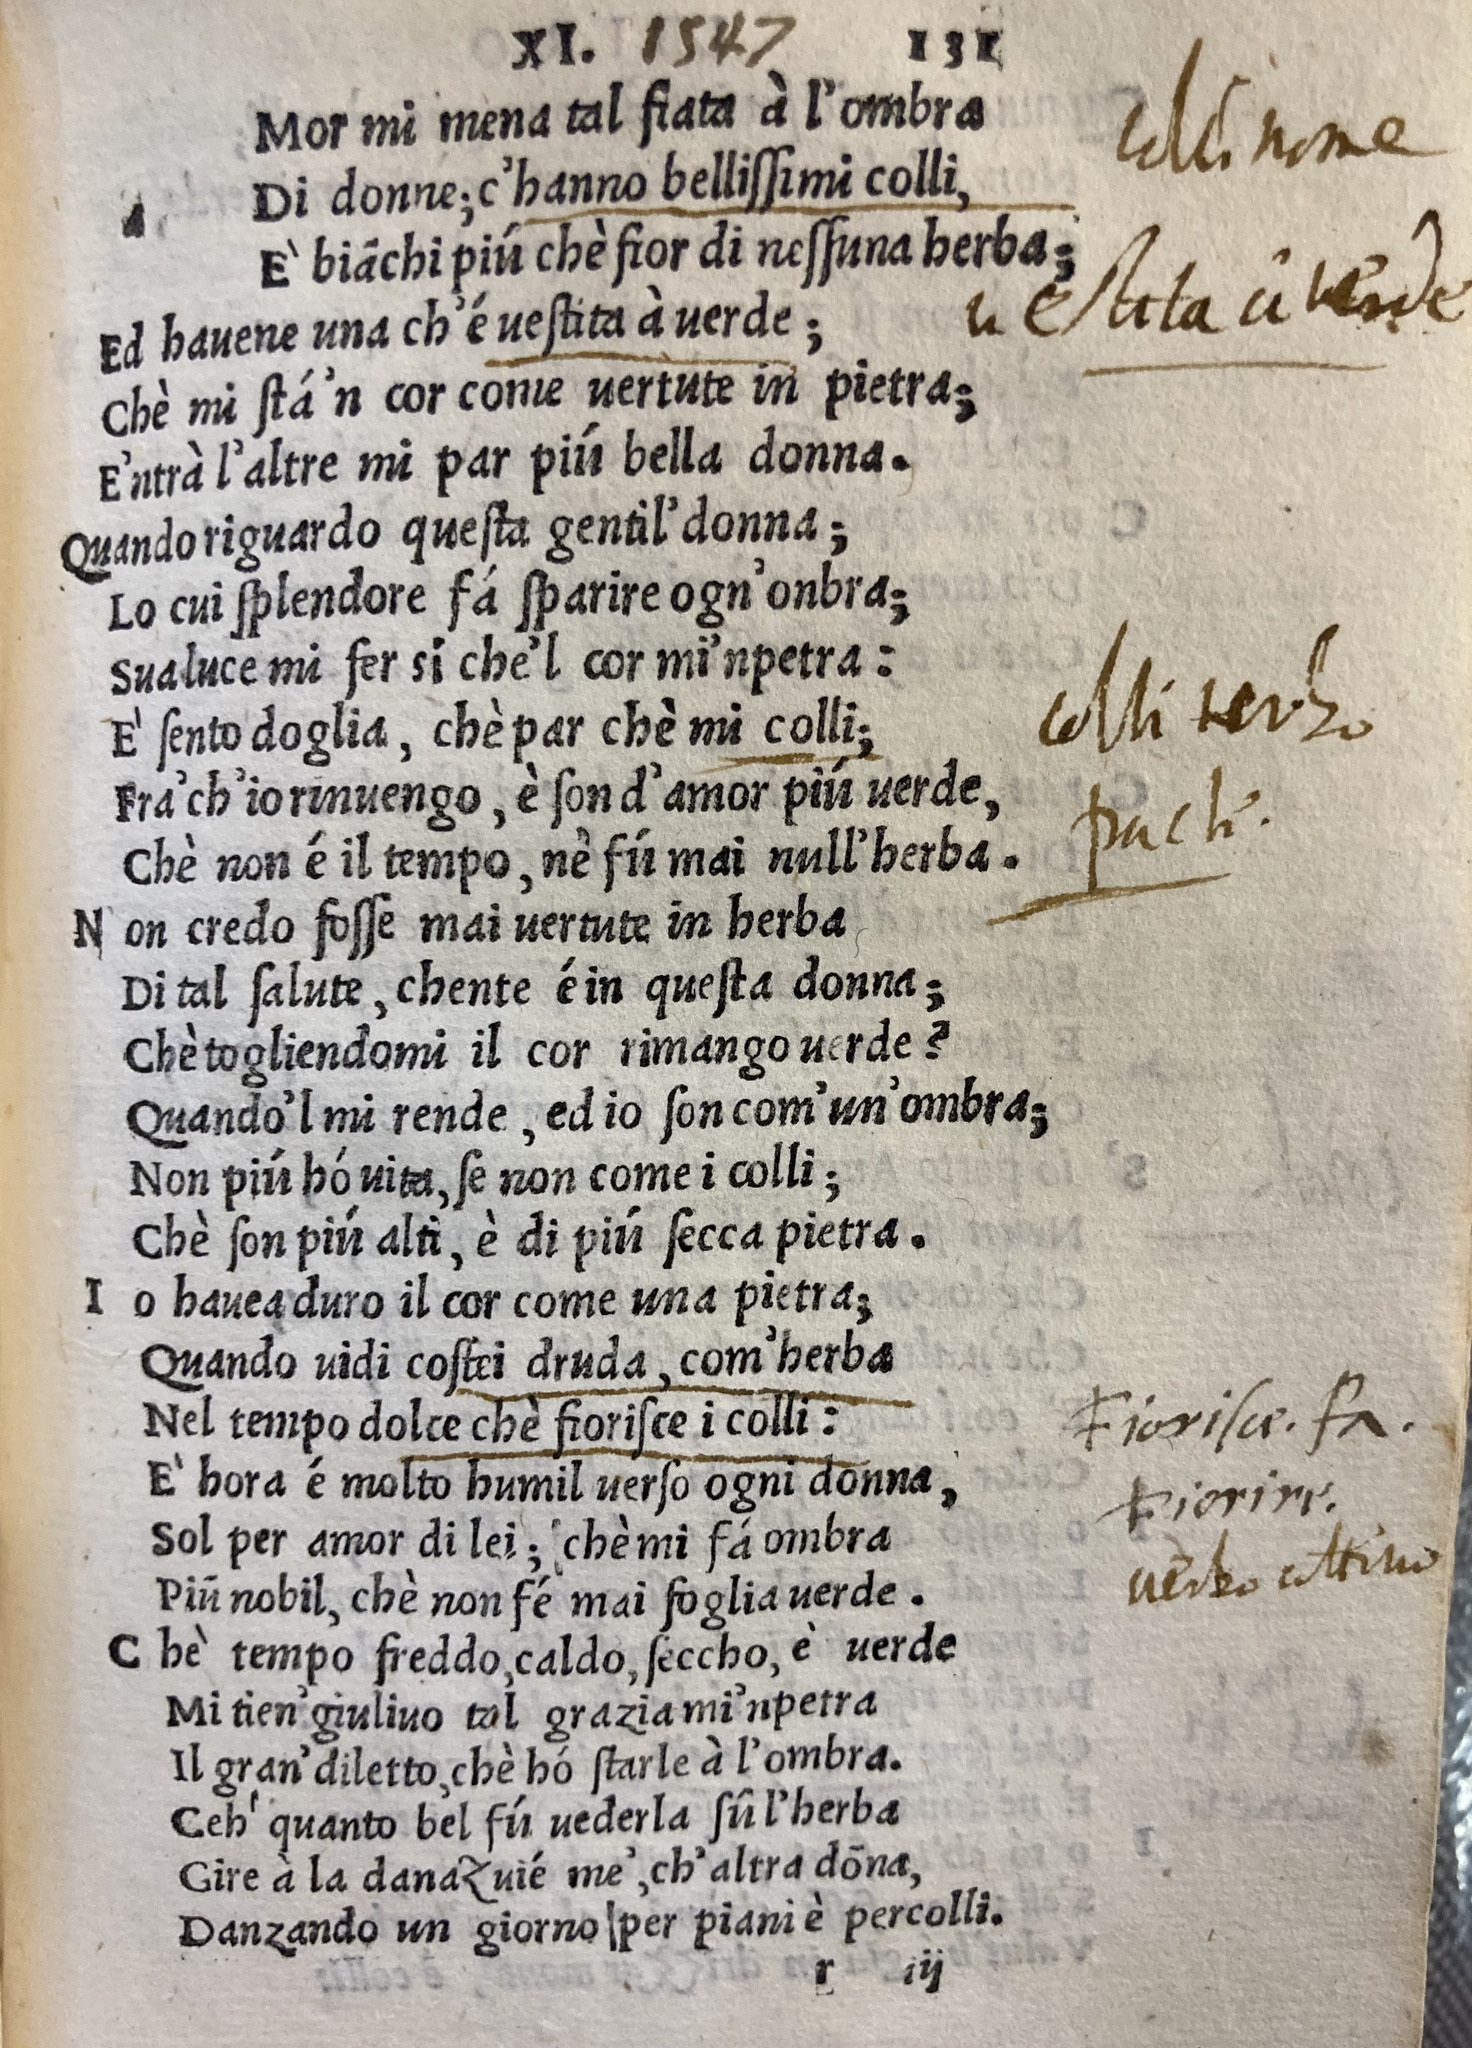 XI. 1547 131
Mor mi mena tal fiata à l'ombra
Di donne; c'hanno bellißimi colli,
E' biãchi piú chè fior di neſſuna herba;
Ed hauene una ch'é ueſtita à uerde;
Chè mi ſtá'n cor come uertute in pietra;
E'ntrà l'altre mi par piú bella donna.
Quando riguardo queſta gentil'donna;
Lo cui ſplendore fá ſparire ogn'onbra;
Sua luce mi fer sí che'l cor mi'npetra:
E' ſento doglia, chè par chè mi colli;
Fra'ch'io rinuengo, è ſon d'amor piú uerde,
Chè non é il tempo, nè fú mai null'herba.
Non credo foſſe mai uertute in herba
Di tal ſalute, chente é in queſta donna;
Chè togliendomi il cor rimango uerde?
Quando'l mi rende, ed io ſon com'un'ombra;
Non piú hó uita, ſe non come i colli;
Chè ſon piú alti, è di piú ſecca pietra.
Io hauea duro il cor come una pietra;
Quando uidi coſtei druda, com'herba
Nel tempo dolce chè fioriſce i colli:
E' hora é molto humil uerſo ogni donna,
Sol per amor di lei; chè mi fá ombra
Piú nobil, chè non fé mai foglia uerde.
Chè tempo freddo, caldo, ſeccho, è uerde
Mi tien'giuliuo tal grazia mi'npetra
Il gran'diletto, chè hó ſtarle à l'ombra.
Ceh' quanto bel fú uederla ſû l'herba
Gire à la danaζuié me', ch'altra dõna,
Danzando un giorno per piani è per colli.
r iij
colli nome
ueſtita à uerde
colli uerbo
Fioriſce. fa.
Fiorire.
uerbo attiuo